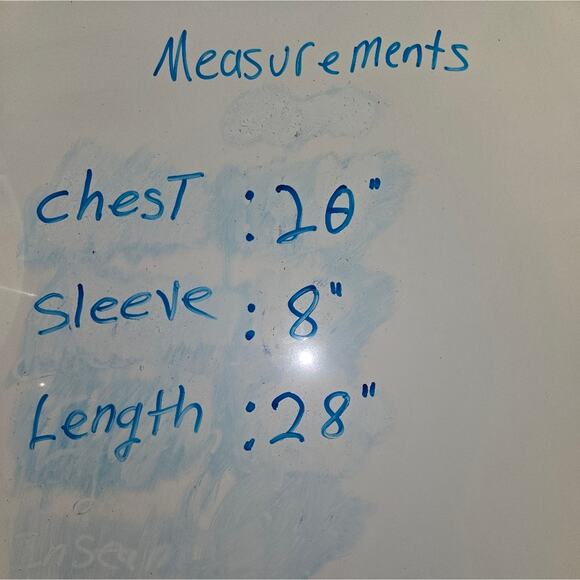 Measurements
chest : 20"
Sleeve : 8"
Length : 28"
Inseam